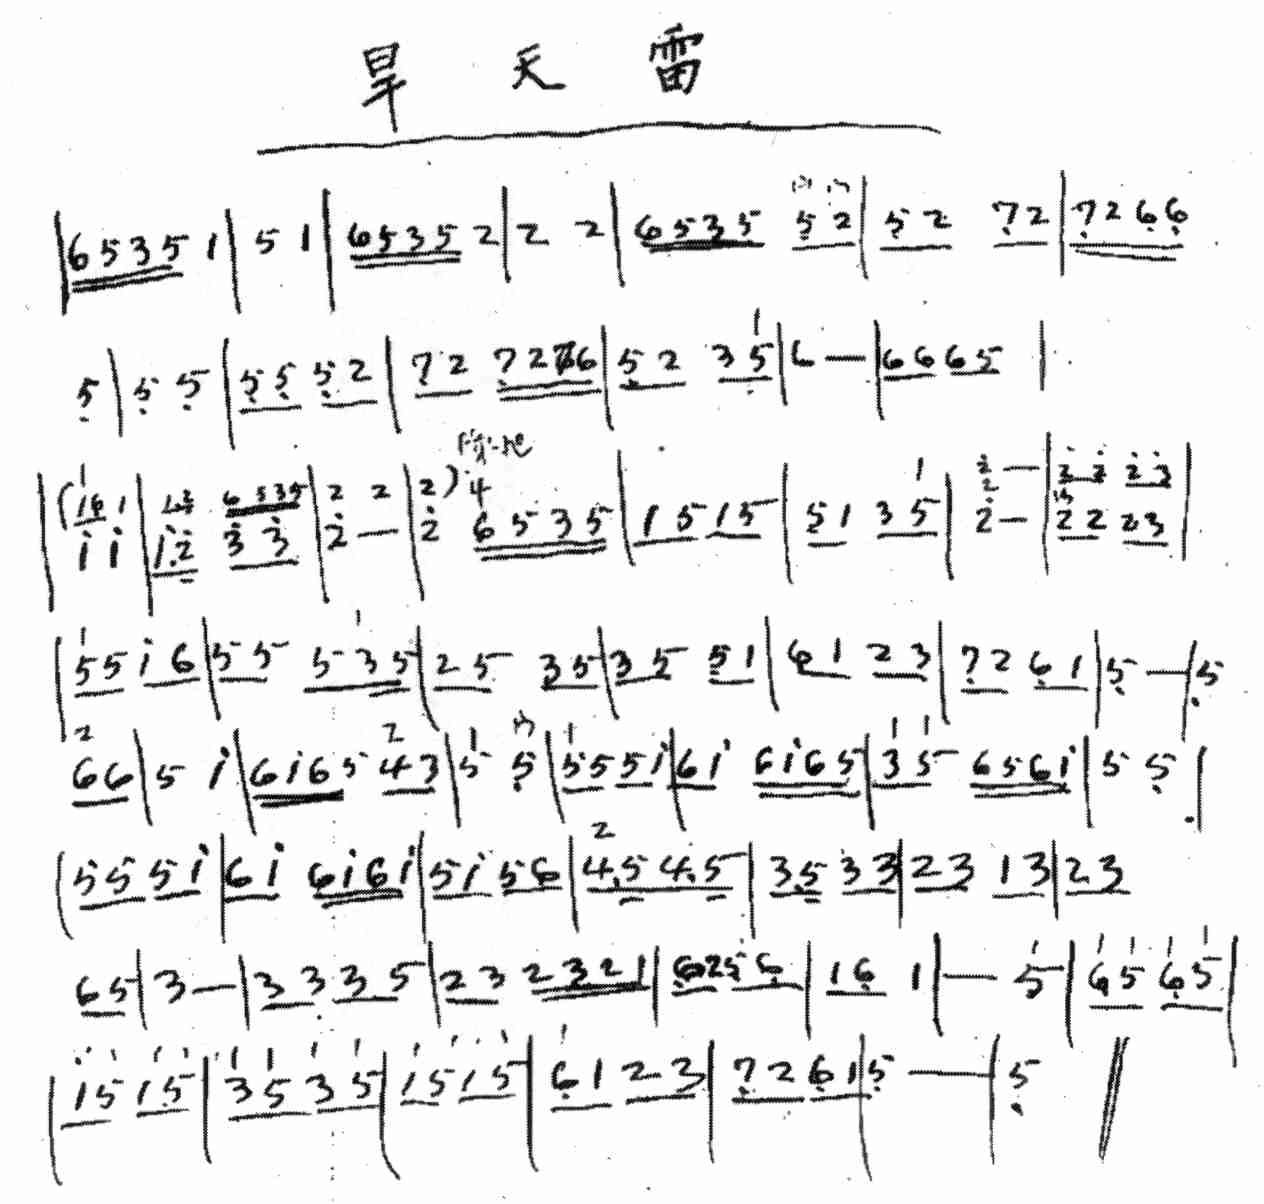 旱天雷
|6535 1|5 1|6535 2|2 2|6535 52|52 72|7266
5|5 5|55 52|72 7276|52 35|6—|66 65|
(161|12 6535|2 2|2)4 2—|22 23|
|i i|i.2 33|2—|2 6535|15 15|51 35|2—|22 23|
|55 i6|55 535|25 35|35 51|61 23|72 61|5—|5
66|5 i|6i65 43|5 5|55 5i|6i 6i65|35 656i|5 5|
(55 5i|6i 6i6i|5i 56|4.5 4.5|3.5 33|23 13|23
65|3—|33 35|23 2321|6256|16 1|— 5|65 65|
|15 15|35 35|15 15|61 23|72 61|5—|5 ‖